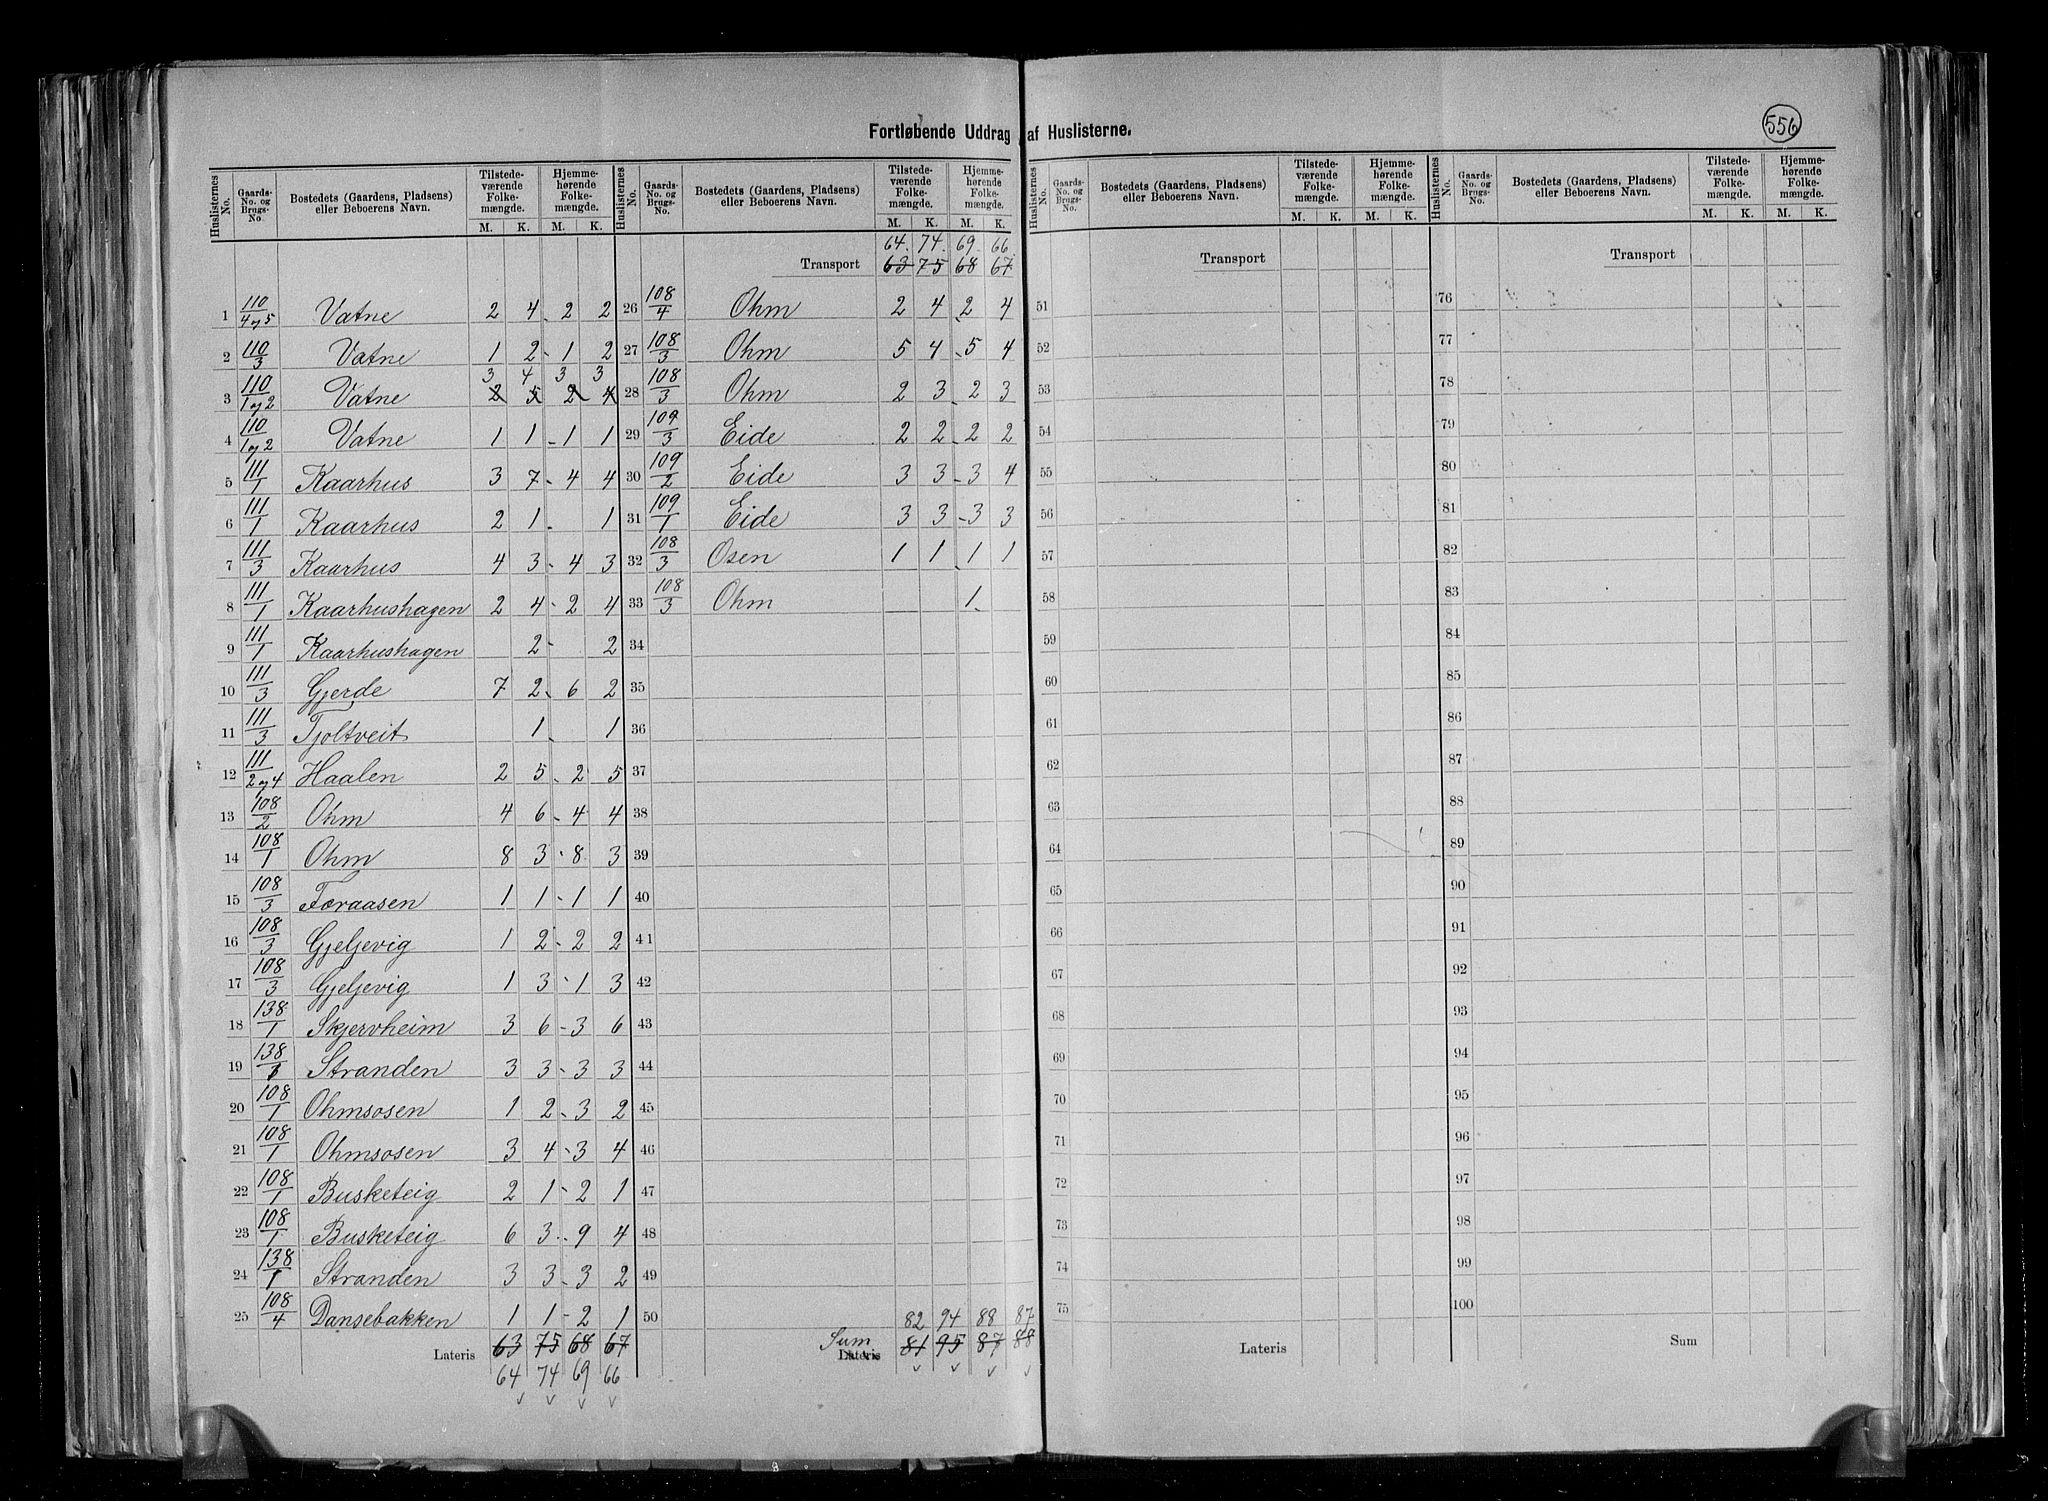 556
Fortløbende Uddrag af Huslisterne.
Huslisternes No. | Gaards-No. og Brugs-No. | Bostedets (Gaardens, Pladsens) eller Beboerens Navn. | Tilstedeværende Folkemængde. M. K. | Hjemmehørende Folkemængde. M. K.
1 110/4 og 5 Vatne 2 4 - 2 2
2 110/3 Vatne 1 2 - 1 2
3 4 3 3
3 110/1 og 2 Vatne 2 5 2 4
4 110/1 og 2 Vatne 1 1 - 1 1
5 111/1 Kaarhus 3 7 - 4 4
6 111/1 Kaarhus 2 1 - 1
7 111/3 Kaarhus 4 3 - 4 3
8 111/1 Kaarhushagen 2 4 - 2 4
9 111/1 Kaarhushagen 2 - 2
10 111/3 Gjerde 7 2 - 6 2
11 111/3 Tjoltveit 1 1
12 111/2 og 4 Haalen 2 5 - 2 5
13 108/2 Ohm 4 6 - 4 4
14 108/1 Ohm 8 3 - 8 3
15 108/3 Foraasen 1 1 - 1 1
16 108/3 Gjeljevig 1 2 - 2 2
17 108/3 Gjeljevig 1 3 - 1 3
18 138/1 Skjervheim 3 6 - 3 6
19 138/1 Stranden 3 3 - 3 3
20 108/1 Ohmsosen 1 2 - 3 2
21 108/1 Ohmsosen 3 4 - 3 4
22 108/1 Busketeig 2 1 - 2 1
23 108/1 Busketeig 6 3 - 9 4
24 138/1 Stranden 3 3 - 3 2
25 108/4 Dansebakken 1 1 - 2 1
Lateris 63 75 68 67
64 74 69 66
Huslisternes No. | Gaards-No. og Brugs-No. | Bostedets (Gaardens, Pladsens) eller Beboerens Navn. | Tilstedeværende Folkemængde. M. K. | Hjemmehørende Folkemængde. M. K.
64. 74. 69. 66
Transport 63 75 68 67
26 108/4 Ohm 2 4 - 2 4
27 108/3 Ohm 5 4 - 5 4
28 108/3 Ohm 2 3 - 2 3
29 109/3 Eide 2 2 - 2 2
30 109/2 Eide 3 3 - 3 4
31 109/1 Eide 3 3 - 3 3
32 108/3 Osen 1 1 1 1
33 108/3 Ohm 1
34
35
36
37
38
39
40
41
42
43
44
45
46
47
48
49
50
82 94 88 87
Sum
Lateris 81 95 87 88
Huslisternes No. | Gaards-No. og Brugs-No. | Bostedets (Gaardens, Pladsens) eller Beboerens Navn. | Tilstedeværende Folkemængde. M. K. | Hjemmehørende Folkemængde. M. K.
Transport
51
52
53
54
55
56
57
58
59
60
61
62
63
64
65
66
67
68
69
70
71
72
73
74
75
Lateris
Huslisternes No. | Gaards-No. og Brugs-No. | Bostedets (Gaardens, Pladsens) eller Beboerens Navn. | Tilstedeværende Folkemængde. M. K. | Hjemmehørende Folkemængde. M. K.
Transport
76
77
78
79
80
81
82
83
84
85
86
87
88
89
90
91
92
93
94
95
96
97
98
99
100
Sum
8